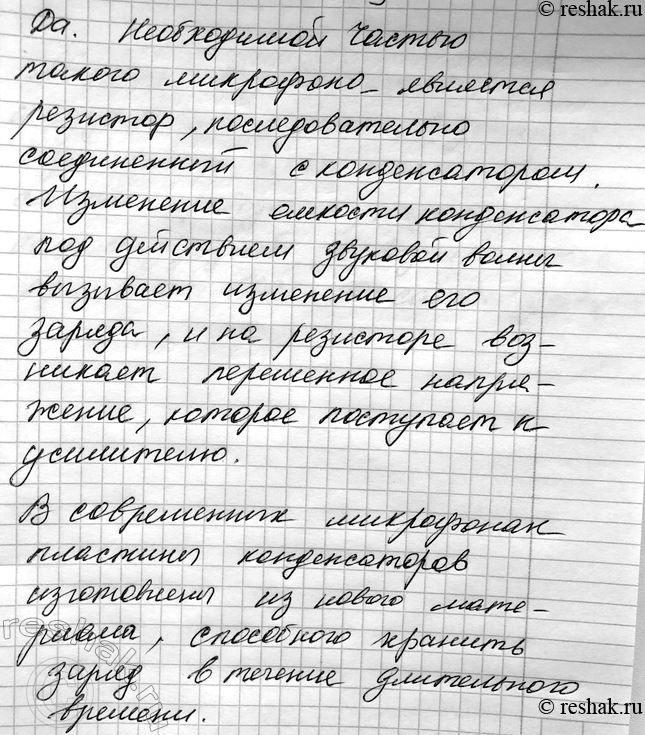 © reshak.ru
Да. Необходимой частью
такого микрофона является
резистор, последовательно
соединенный с конденсатором.
Изменение емкости конденсатора
под действием звуковой волны
вызывает изменение его
заряда, и на резисторе воз-
никает переменное напря-
жение, которое поступает к
усилителю.
В современных микрофонах
пластины конденсаторов
изготовлены из нового мате-
риала, способного хранить
заряд в течение длительного
времени.
reshak.ru
© reshak.ru